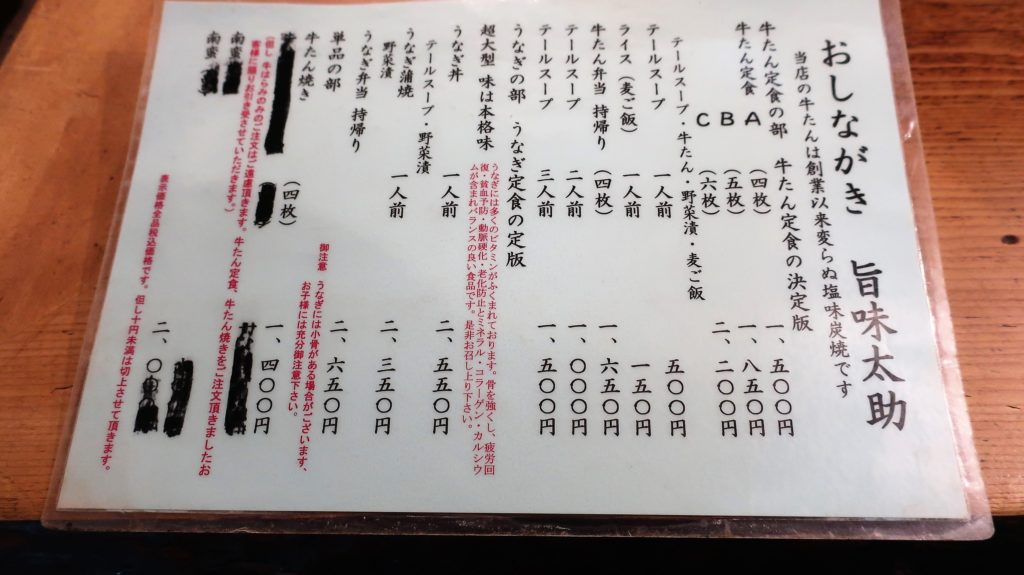 おしながき 旨味太助
当店の牛たんは創業以来変らぬ塩味炭焼です
牛たん定食の部 牛たん定食の決定版
牛たん定食 A (四枚) 一、五〇〇円
B (五枚) 一、八五〇円
C (六枚) 二、二〇〇円
テールスープ・牛たん・野菜漬・麦ご飯
テールスープ 一人前 五〇〇円
ライス (麦ご飯) 一人前 一五〇円
牛たん弁当 持帰り (四枚) 一、六五〇円
テールスープ 二人前 一、〇〇〇円
テールスープ 三人前 一、五〇〇円
うなぎの部 うなぎ定食の定版
超大型 味は本格味
うなぎには多くのビタミンがふくまれております。骨を強くし、疲労回
復・貧血予防・動脈硬化・老化防止とミネラル・コラーゲン・カルシウ
ムが含まれバランスの良い食品です。是非お召し上り下さい。
うなぎ丼 一人前 二、五五〇円
テールスープ・野菜漬
うなぎ蒲焼 一人前 二、三五〇円
野菜漬
うなぎ弁当 持帰り 二、六五〇円
御注意 うなぎには小骨がある場合がございます、
お子様には充分御注意下さい。
単品の部
牛たん焼き (四枚) 一、四〇〇円
(但し 牛はらみのみのご注文はご遠慮頂きます。牛たん定食、牛たん焼きをご注文頂きましたお
客様に限りお引き受させていただきます。)
南蛮
南蛮
二、〇
表示価格全品税込価格です。但し十円未満は切上させて頂きます。